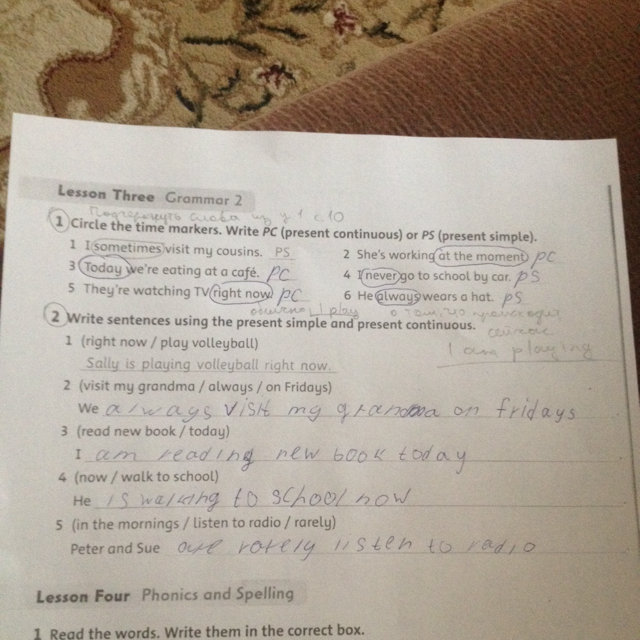 Lesson Three Grammar 2
Подчеркнуть слова из у 1 с 10
1 Circle the time markers. Write PC (present continuous) or PS (present simple).
1 I sometimes visit my cousins. PS 2 She's working at the moment. PC
3 Today we're eating at a café. PC 4 I never go to school by car. PS
5 They're watching TV right now. PC 6 He always wears a hat. PS
обычно I play о том, что происходит
2 Write sentences using the present simple and present continuous. сейчас
1 (right now / play volleyball) I am playing
Sally is playing volleyball right now.
2 (visit my grandma / always / on Fridays)
We always visit my grandma on fridays
3 (read new book / today)
I am reading new book today
4 (now / walk to school)
He is walking to school now
5 (in the mornings / listen to radio / rarely)
Peter and Sue are rarely listen to radio
Lesson Four Phonics and Spelling
1 Read the words. Write them in the correct box.